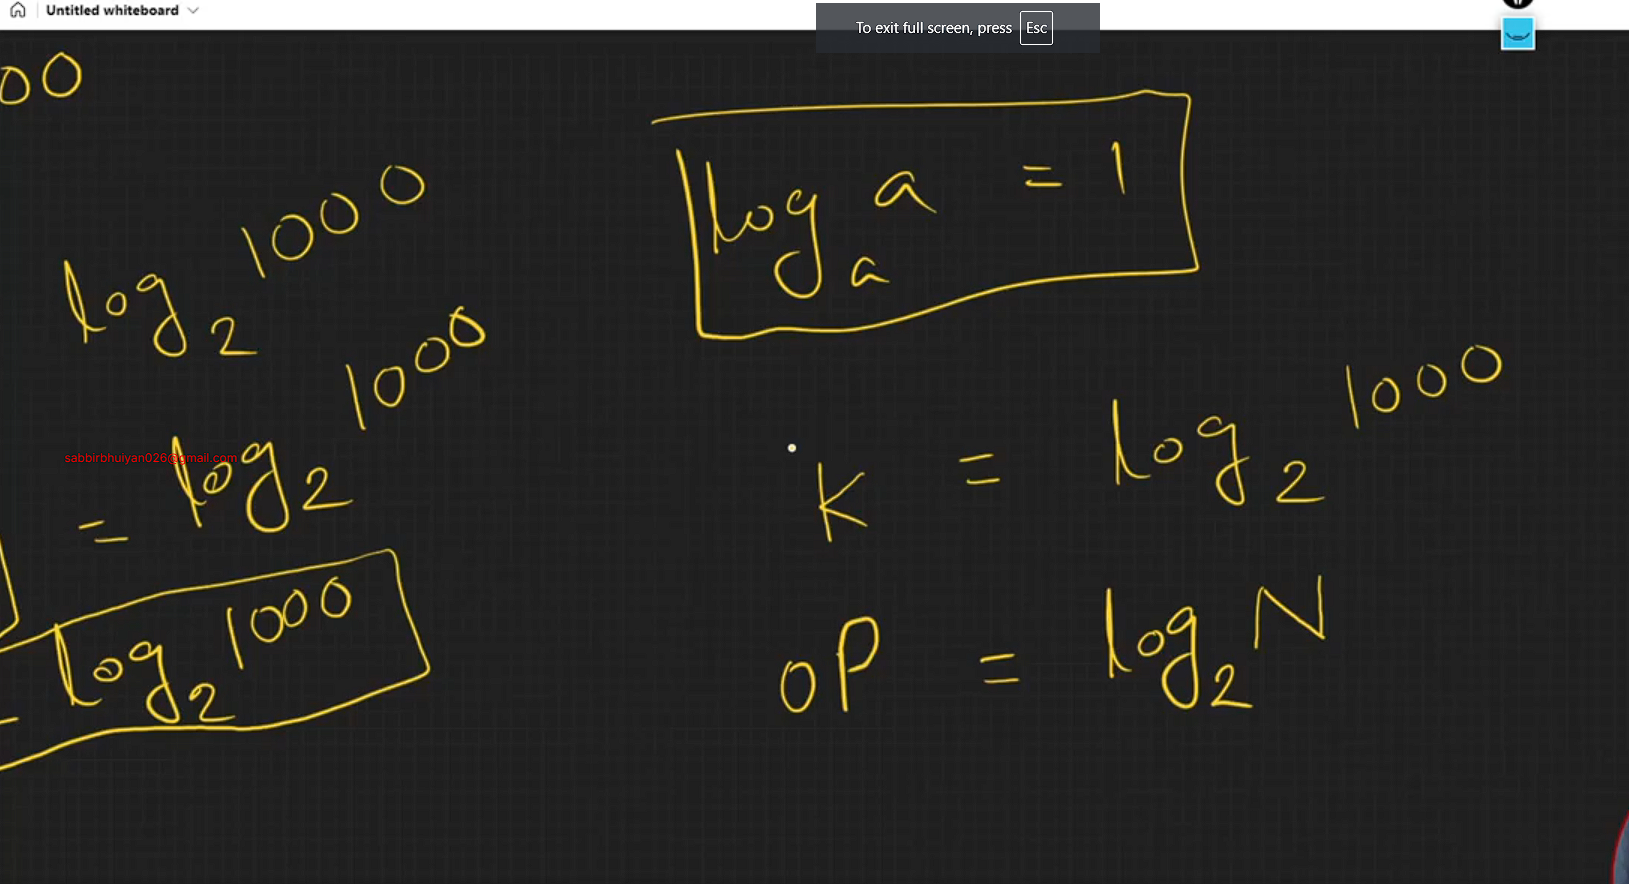 Untitled whiteboard
To exit full screen, press Esc
00
log₂ 1000
= log₂ 1000
log₂ 1000
sabbirbhuiyan026@gmail.com
logₐ a = 1
K = log₂ 1000
OP = log₂ N